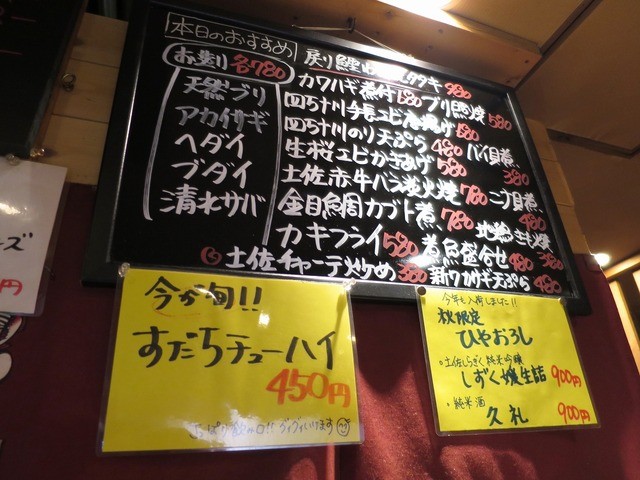 本日のおすすめ
お造り 各780
天然ブリ
アカイサギ
ヘダイ
ブダイ
清水サバ
戻り鰹 タタキ 980
カワハギ煮付 580 ブリ照焼 580
四万十川手長エビ唐揚げ 580
四万十川のり天ぷら 480 バイ貝煮 380
生桜エビかきあげ 580
土佐赤牛バラ炭火焼 780 二丁貝煮 480
金目鯛カブト煮 780
カキフライ 580 煮魚盛合せ 480
土佐チャーテ炒め 380 新ワカサギ天ぷら 480
ズ
円
今が旬!!
すだちチューハイ
450円
今年も入荷しました!!
秋限定
ひやおろし
・土佐しらぎく 純米吟醸
しずく媛生詰 900円
・純米酒
久礼 900円